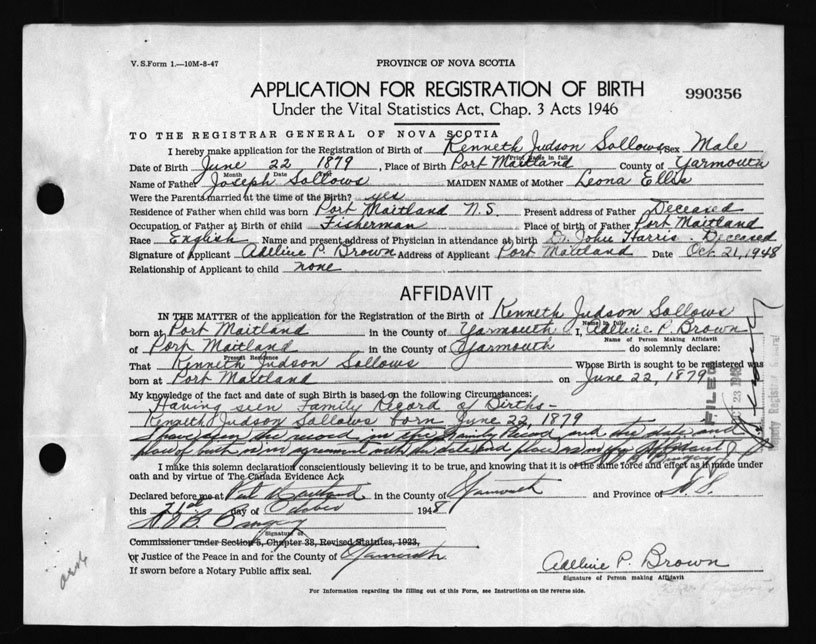 V. S. Form 1.—10M-8-47
PROVINCE OF NOVA SCOTIA
APPLICATION FOR REGISTRATION OF BIRTH
990356
Under the Vital Statistics Act, Chap. 3 Acts 1946
TO THE REGISTRAR GENERAL OF NOVA SCOTIA
I hereby make application for the Registration of Birth of Kenneth Judson Sollows Sex Male
Print Name in full
Date of Birth June 22 1879, Place of Birth Port Maitland County of Yarmouth
Month Date Year
Name of Father Joseph Sollows MAIDEN NAME of Mother Leona Ellis
Were the Parents married at the time of the Birth? yes
Residence of Father when child was born Port Maitland N.S. Present address of Father Deceased
Occupation of Father at Birth of child Fisherman Place of birth of Father Port Maitland
Race English Name and present address of Physician in attendance at birth Dr. John Harris. Deceased
Signature of Applicant Adeline P. Brown Address of Applicant Port Maitland Date Oct 21, 1948
Relationship of Applicant to child none
AFFIDAVIT
IN THE MATTER of the application of the Birth of Kenneth Judson Sollows
Name in full
born at Port Maitland in the County of Yarmouth I, Adeline P. Brown
Name of Person Making Affidavit
of Port Maitland in the County of Yarmouth do solemnly declare:
Present Residence
That Kenneth Judson Sollows Whose Birth is sought to be registered was
born at Port Maitland on June 22, 1879
My knowledge of the fact and date of such Birth is based on the following Circumstances:
Having seen Family Record of Births—
Kenneth Judson Sollows born June 22, 1879
I have seen the record in the Family Record and the date and
place of birth is in agreement with the date and place as
I make this solemn declaration conscientiously believing it to be true, and knowing that it is of the same force and effect as if made under
oath and by virtue of The Canada Evidence Act.
Declared before me at Port Maitland in the County of Yarmouth and Province of N. S.
this 21st day of October 1948
Signature of
Commissioner under Section 5, Chapter 38, Revised Statutes, 1923,
or Justice of the Peace in and for the County of Yarmouth
If sworn before a Notary Public affix seal.
Adeline P. Brown
Signature of Person making Affidavit
For Information regarding the filling out of this Form, see Instructions on the reverse side.
FILED